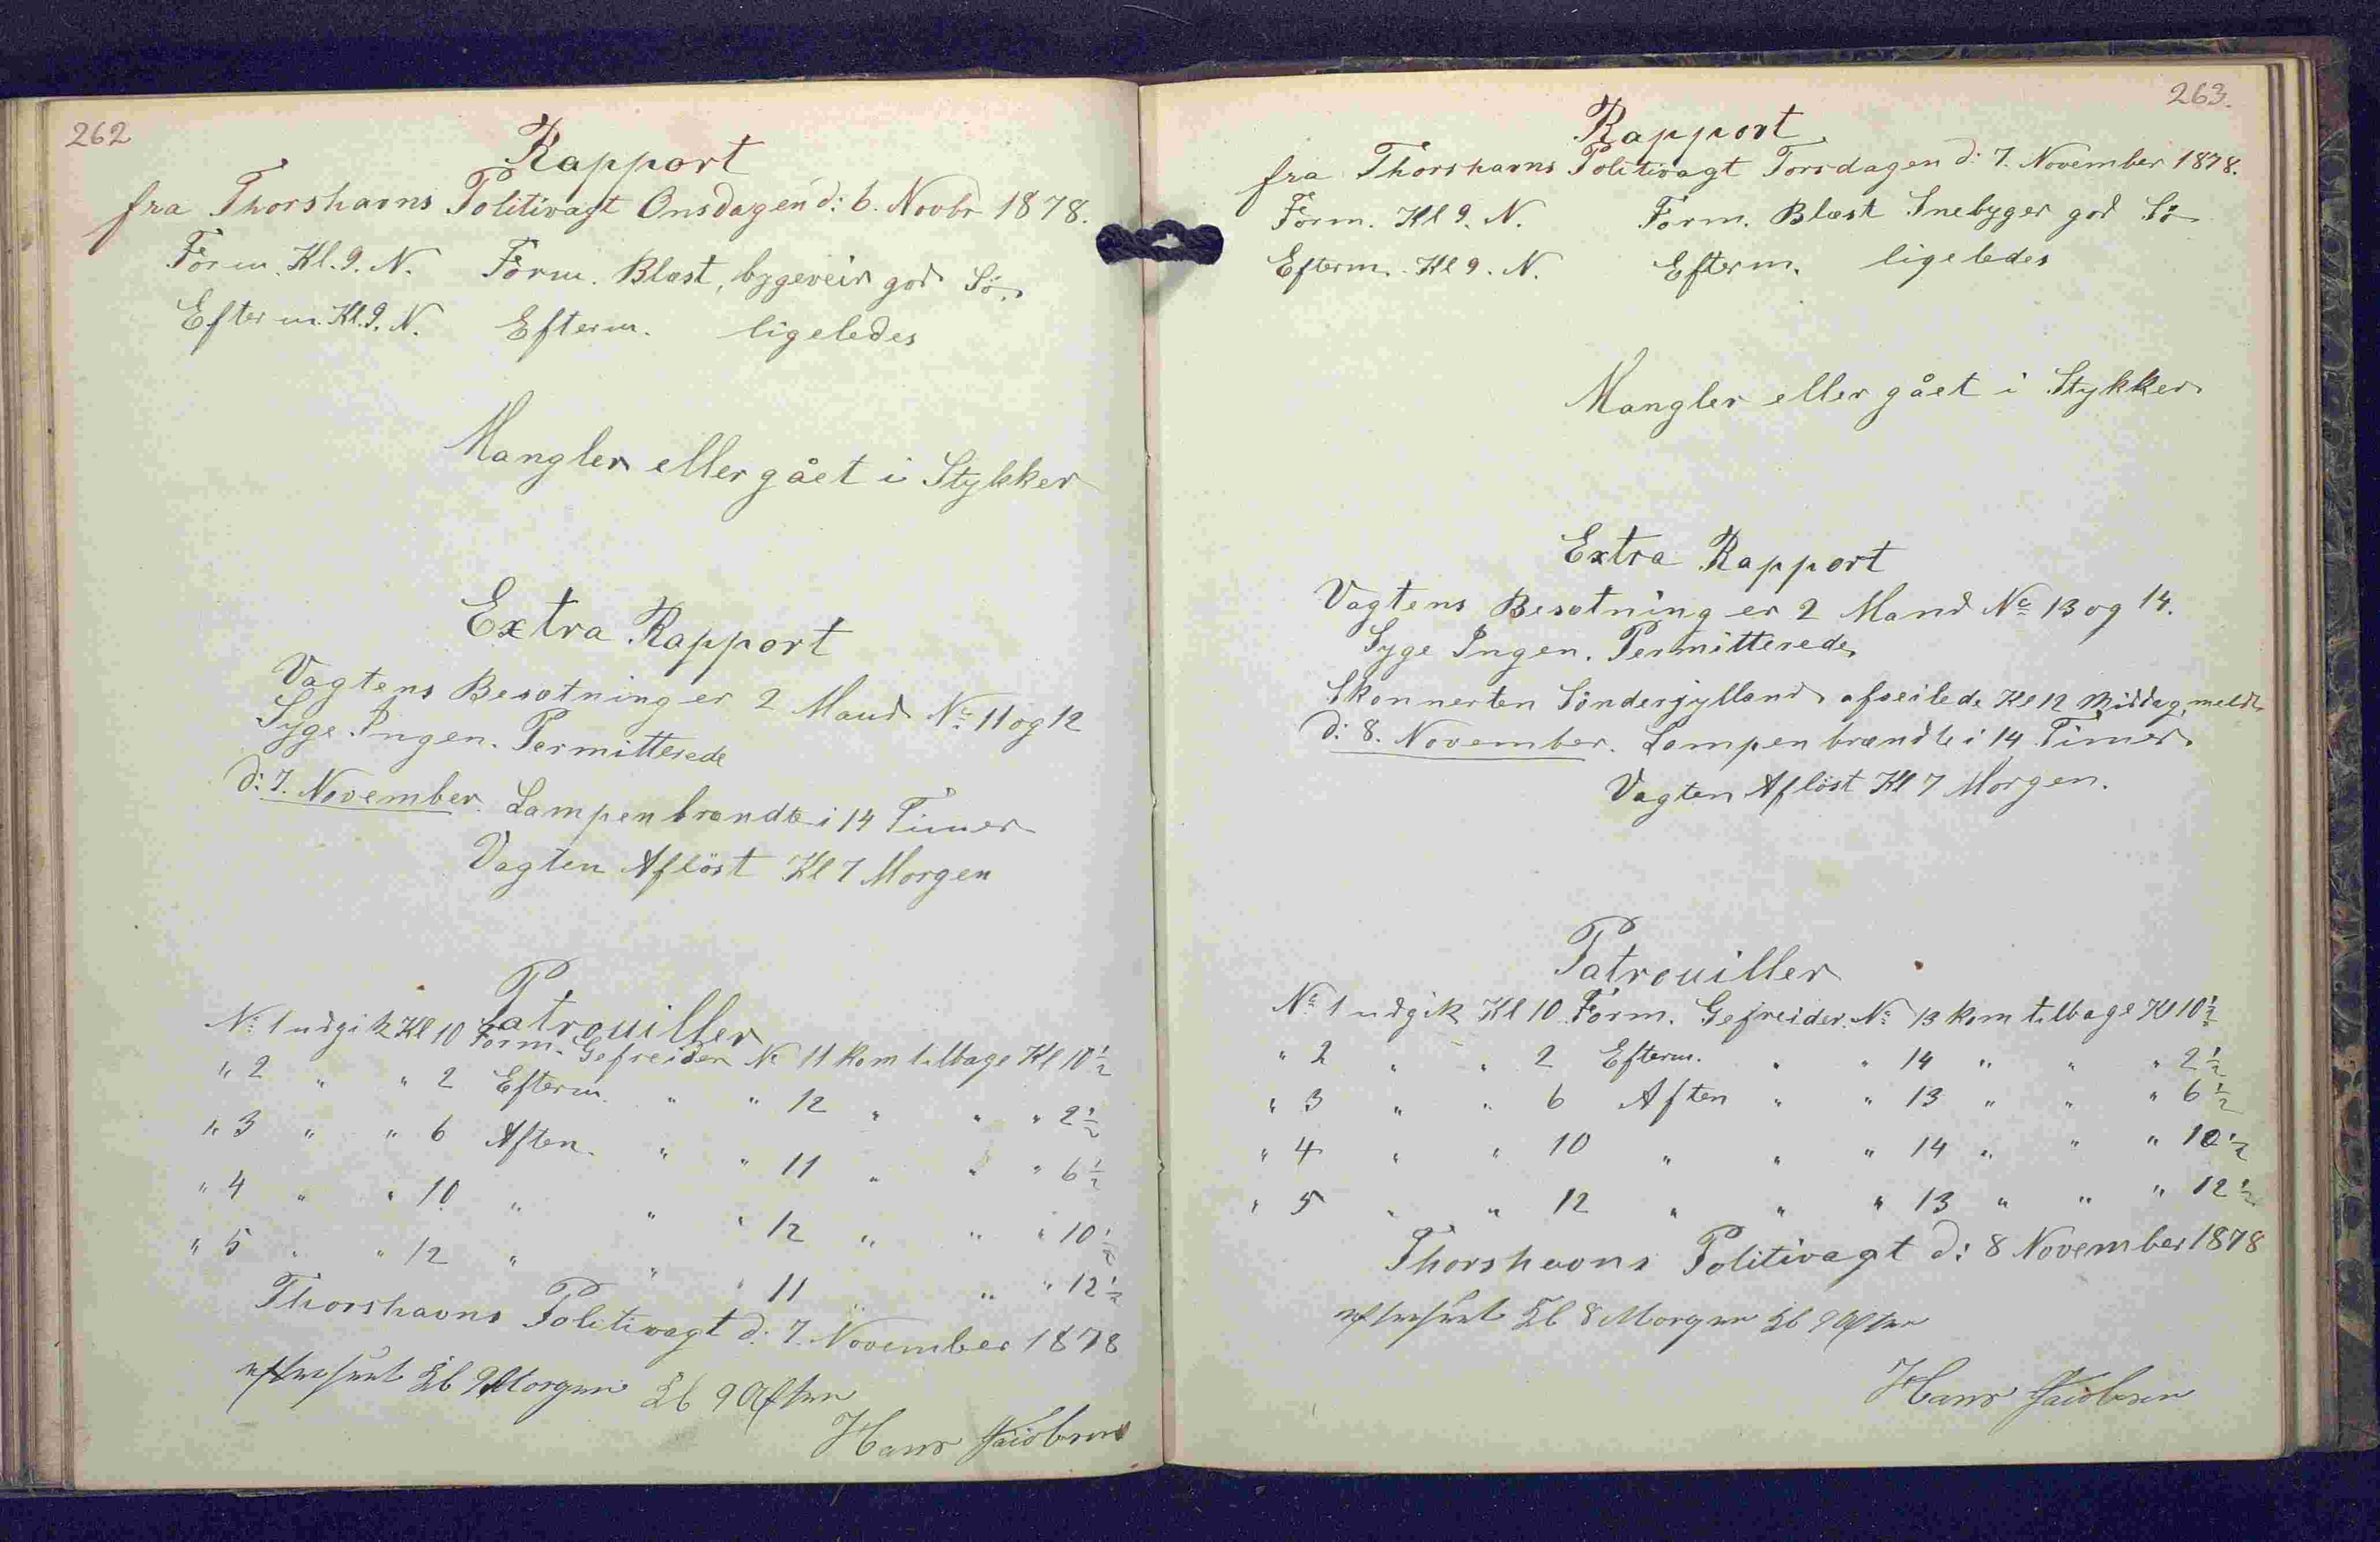 262
Rapport
fra Thorshavns Politivagt Onsdagen d: 6. Novbr 1878.
Form. Kl. 9. N. Form. Blæst, bygeveir god Sö.
Efterm. Kl. 9. N. Efterm. ligeledes
Mangler eller gået i Stykker
Extra Rapport
Vagtens Besætning er 2 Mand No 11 og 12
Syge Ingen. Permitterede
d: 7. November. Lampen brændte i 14 Timer
Vagten Aflöst Kl 7 Morgen
Patrouiller
No 1 udgik Kl 10 Form. Gefreider No 11 kom tilbage Kl 10 1/2
" 2 " " 2 Efterm. " " 12 " " " 2 1/2
" 3 " " 6 Aften. " " 11 " " " 6 1/2
" 4 " " 10 " " " 12 " " " 10 1/2
" 5 " " 12 " " " 11 " " " 12 1/2
Thorshavns Politivagt d: 7. November 1878
efterseet Kl 9 Morgen Kl 9 Aften
Hans Jacobsen
263.
Rapport
fra Thorshavns Politivagt Torsdagen d: 7. November 1878.
Form. Kl 9. N. Form. Blæst Snebyger god Sö
Efterm. Kl 9. N. Efterm. ligeledes
Mangler eller gået i Stykker
Extra Rapport
Vagtens Besætning er 2 Mand No 13 og 14.
Syge Ingen. Permitterede
Skonnerten Sönderjylland afseilede Kl 12 Middag, meldt
d: 8. November. Lampen brændte i 14 Timer.
Vagten Aflöst Kl 7 Morgen.
Patrouiller
No 1 udgik Kl 10 Form. Gefreider. No 13 kom tilbage Kl 10 1/2
" 2 " " 2 Efterm. " " 14 " " " 2 1/2
" 3 " " 6 Aften " " 13 " " " 6 1/2
" 4 " " 10 " " " 14 " " " 10 1/2
" 5 " " 12 " " " 13 " " " 12 1/2
Thorshavns Politivagt d: 8 November 1878
efterseet Kl 8 Morgen Kl 9 Aften
Hans Jacobsen